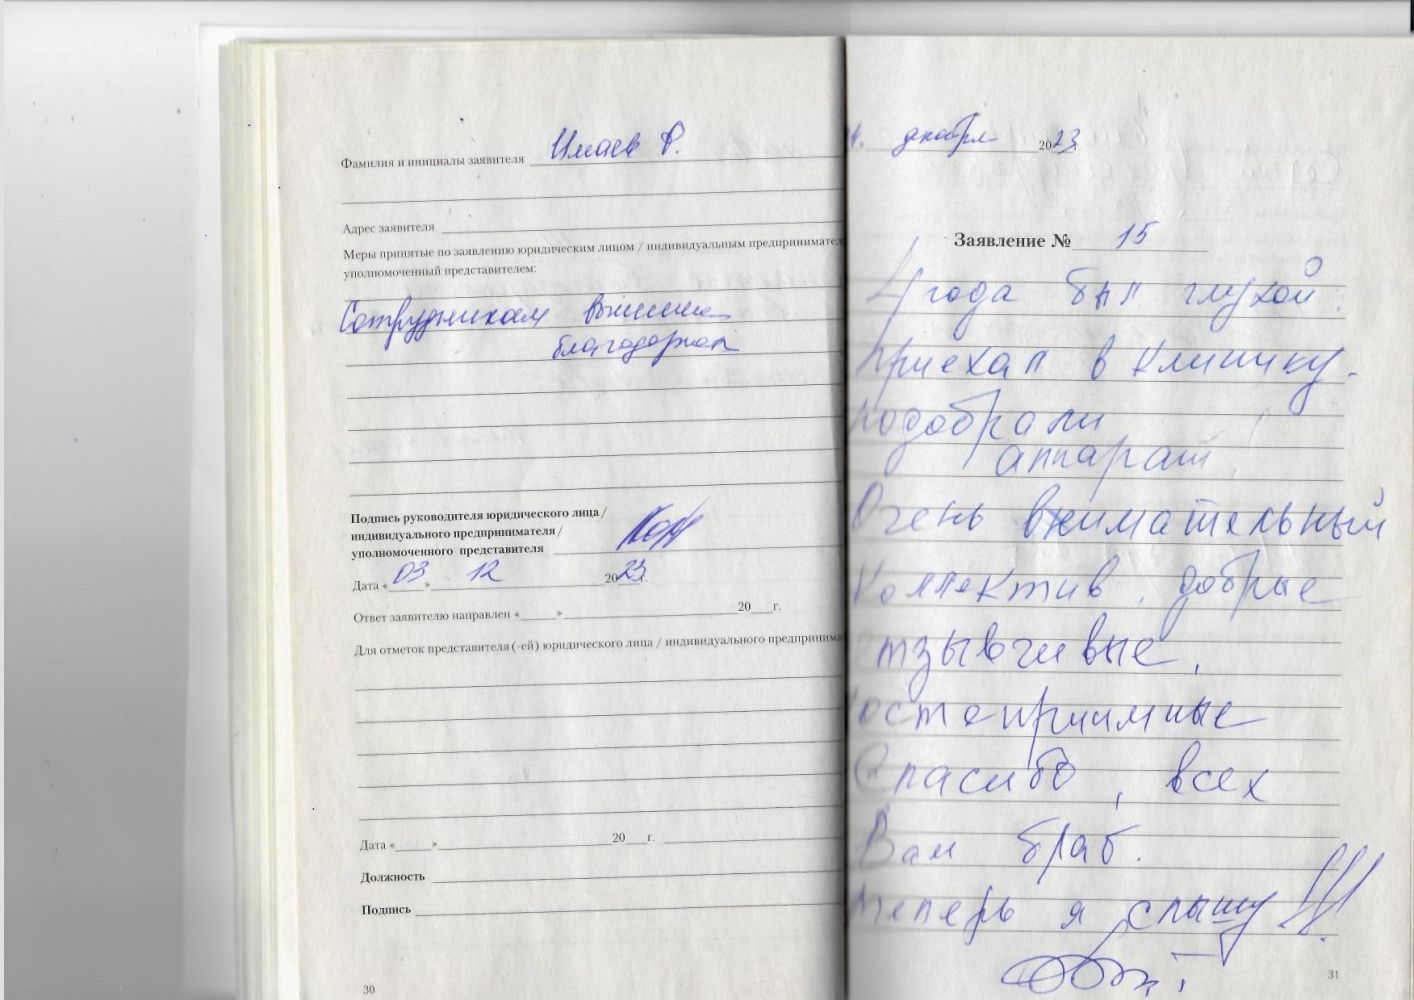 Фамилия и инициалы заявителя Имаев Р.
Адрес заявителя
Меры принятые по заявлению юридическим лицом / индивидуальным предпринимател
уполномоченный представителем:
Сотрудникам вынесена
благодарность
Подпись руководителя юридического лица /
индивидуального предпринимателя /
уполномоченного представителя
Дата «03» 12 2023г.
Ответ заявителю направлен «____» 20___г.
Для отметок представителя (-ей) юридического лица / индивидуального предпринима
Дата «____» 20___г.
Должность
Подпись
30
декабря 2023г.
Заявление № 15
4 года был глухой.
Приехал в клинику.
Подобрали
аппарат!
Очень внимательный
Коллектив, добрые
отзывчивые,
гостеприимные
Спасибо, всех
Вам благ.
теперь я слышу!!!
31